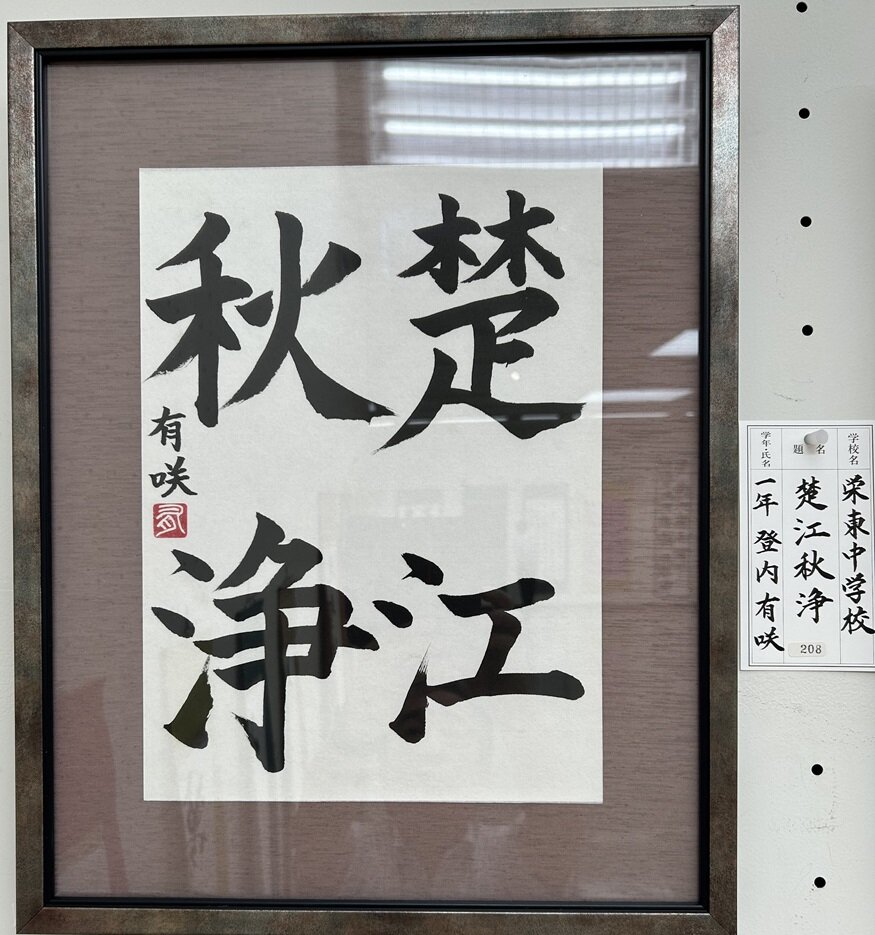 楚江
秋浄
有咲
学校名
栄東中学校
題名
楚江秋浄
208
学年・氏名
一年 登内有咲